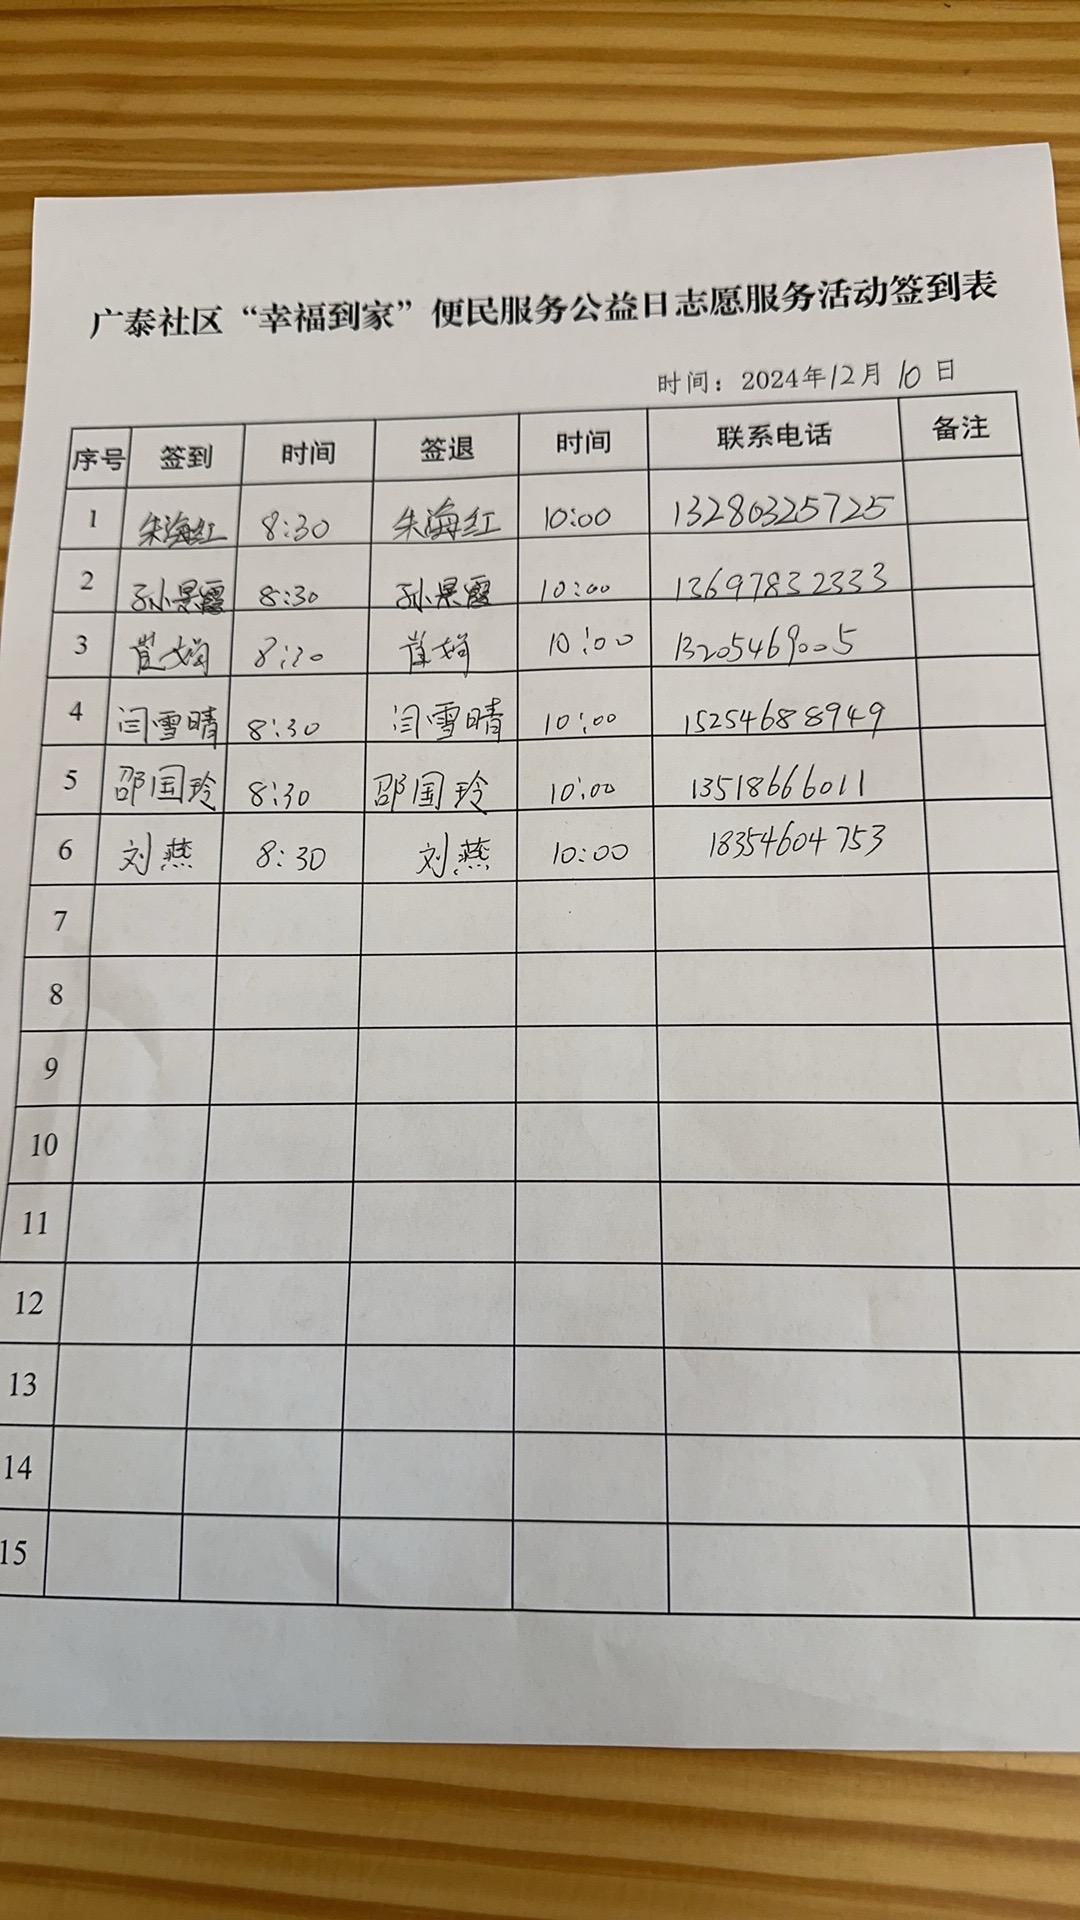 广泰社区“幸福到家”便民服务公益日志愿服务活动签到表
时间：2024年12月10日
序号 签到 时间 签退 时间 联系电话 备注
1 朱海红 8:30 朱海红 10:00 13280325725
2 孙景霞 8:30 孙景霞 10:00 13697832333
3 8:30 10:00 13205469005
4 闫雪晴 8:30 闫雪晴 10:00 15254688949
5 邵国玲 8:30 邵国玲 10:00 13518666011
6 刘燕 8:30 刘燕 10:00 18354604753
7
8
9
10
11
12
13
14
15